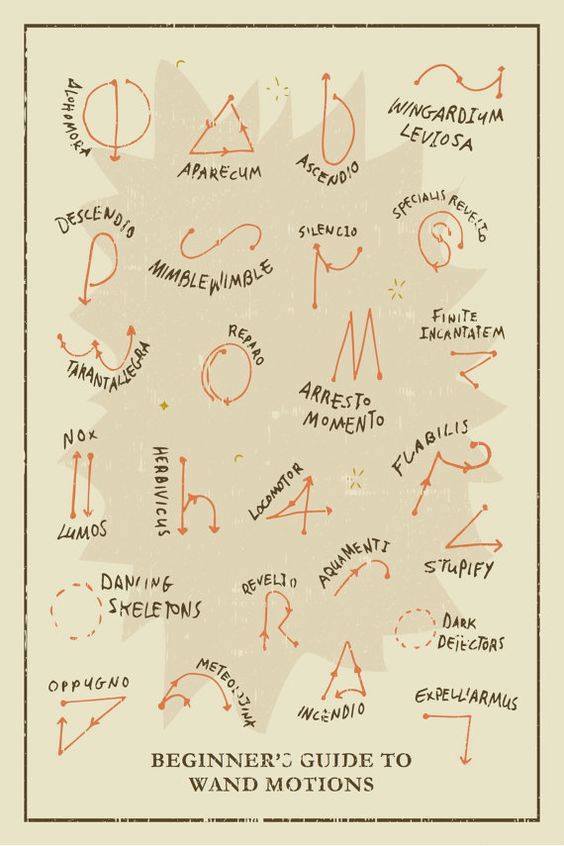 ALOHOMORA
APARECUM
ASCENDIO
WINGARDIUM
LEVIOSA
DESCENDIO
MIMBLEWIMBLE
SILENCIO
SPECIALIS REVELIO
TARANTALLEGRA
REPARO
ARRESTO
MOMENTO
FINITE
INCANTATEM
NOX
LUMOS
HERBIVICUS
LOCOMOTOR
FLABILIS
STUPIFY
DANCING
SKELETONS
REVELIO
AQUAMENTI
DARK
DETECTORS
OPPUGNO
METEOOJINX
INCENDIO
EXPELL'ARMUS
BEGINNER'S GUIDE TO
WAND MOTIONS